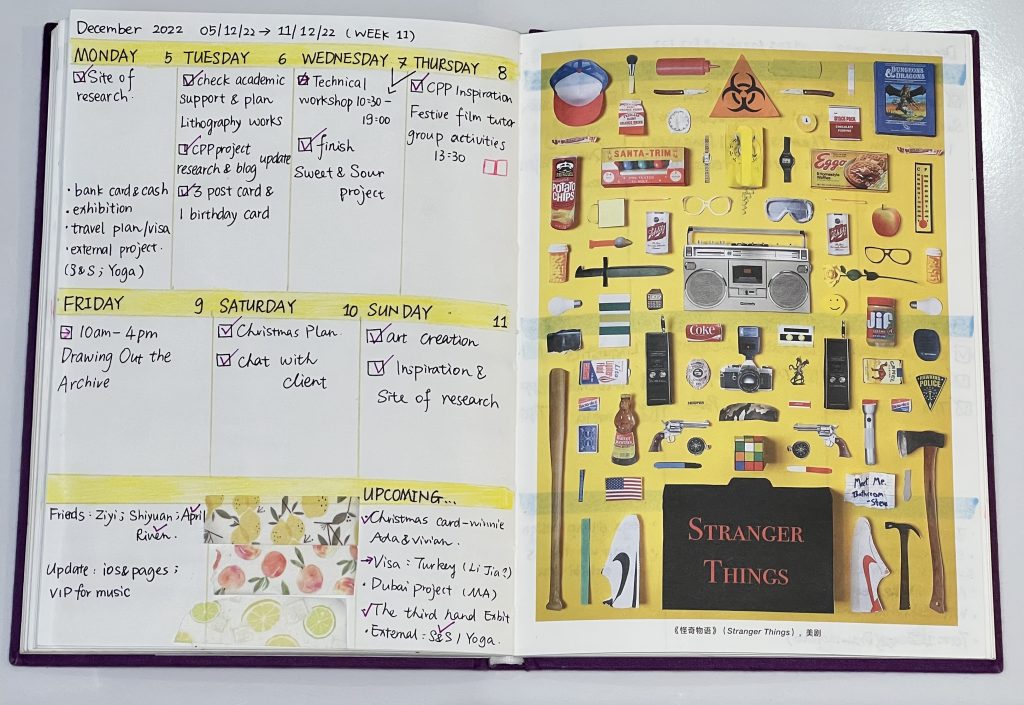 December 2022 05/12/22 → 11/12/22 (WEEK 11)
MONDAY 5
Site of
research.
• bank card & cash
• exhibition
• travel plan/visa
• external project.
(S&S ; Yoga)
TUESDAY 6
check academic
support & plan
Lithography works
CPP project update
research & blog
3 post card &
1 birthday card
WEDNESDAY 7
Technical
workshop 10:30-
19:00
finish
Sweet & Sour
project
THURSDAY 8
CPP Inspiration
Festive film tutor
group activities
13:30
FRIDAY 9
10am-4pm
Drawing Out the
Archive
SATURDAY 10
Christmas Plan
chat with
client
SUNDAY 11
art creation
Inspiration &
Site of research
Frieds: Ziyi; Shiyuan; April
Riven.
Update: ios & pages;
VIP for music
UPCOMING...
Christmas card-winnie
Ada & vivian.
→ Visa: Turkey (Li Jia?)
• Dubai project (MA)
The third hand Exbit
• External: S&S / Yoga.
DUNGEONS
& DRAGONS
SANTA-TRIM
POTATO
CHIPS
Eggo
Coke
Jif
HAWKINS
POLICE
HOPPER
Meet Me.
Bathroom
-Steve
STRANGER
THINGS
《怪奇物语》(Stranger Things)，美剧